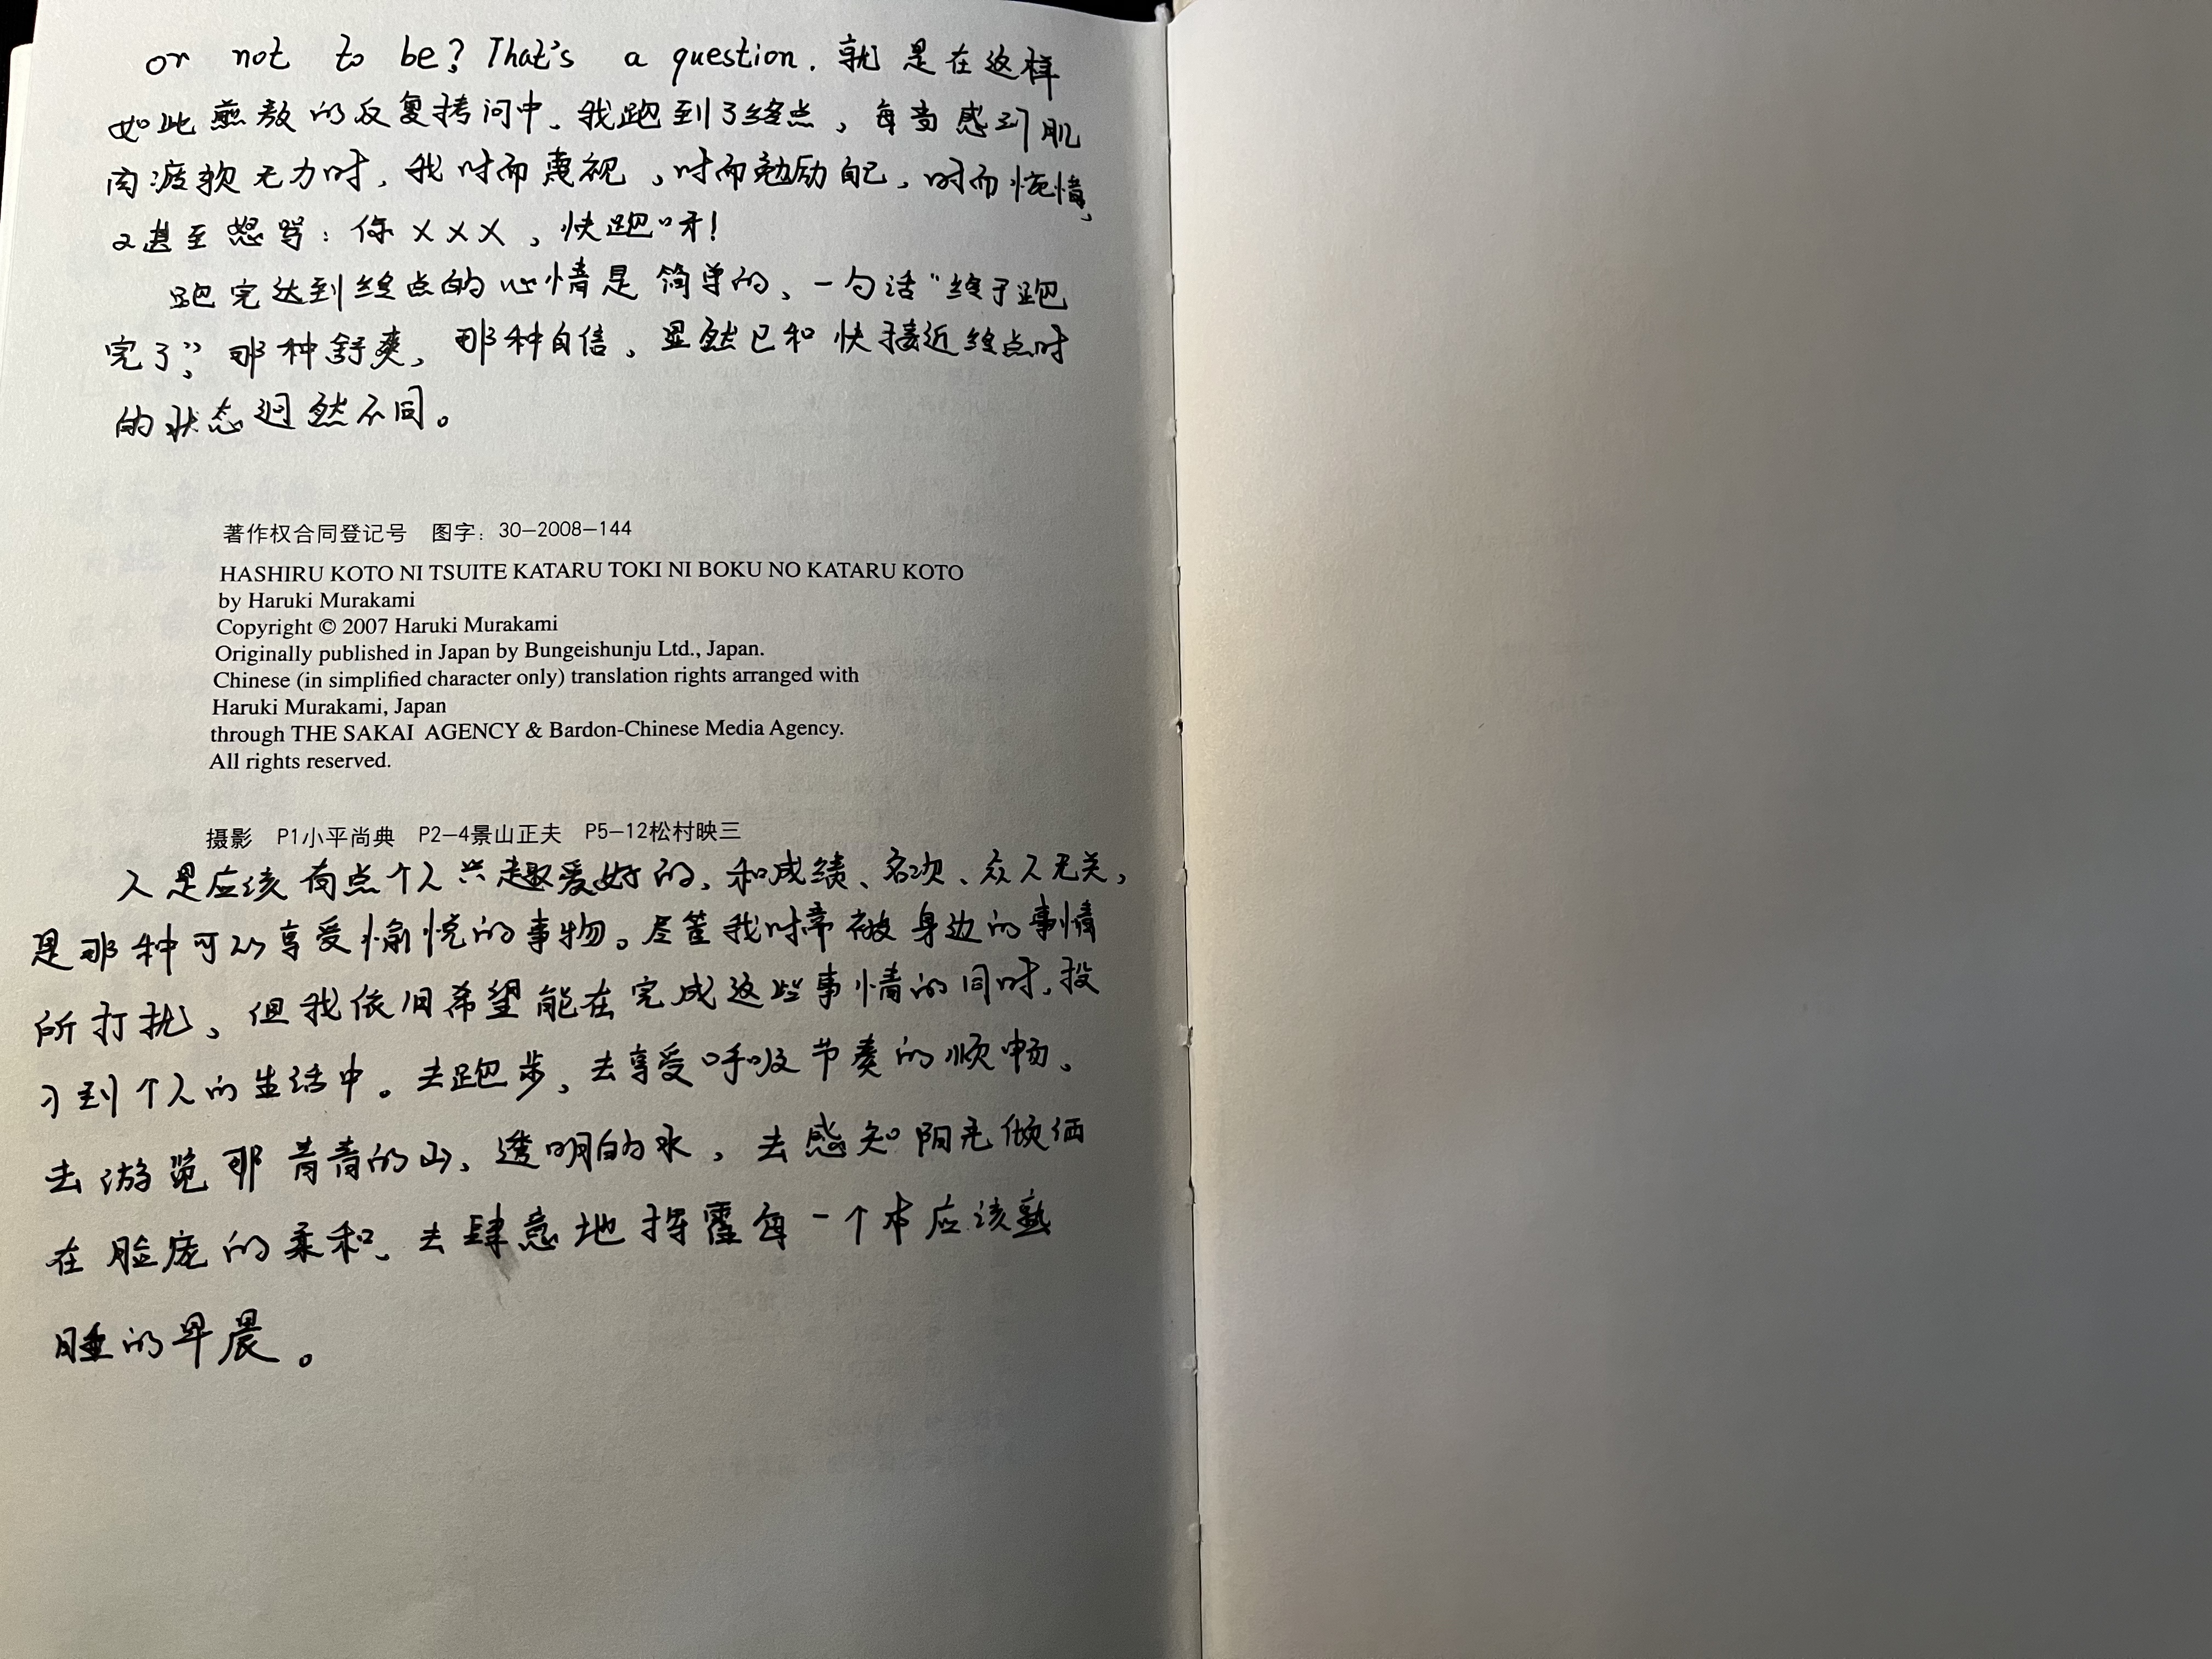 or not to be? That's a question. 就是在这样
如此煎熬的反复拷问中、我跑到了终点，每当感到肌
肉疲软无力时，我时而蔑视，时而勉励自己，时而惋惜，
又甚至怒骂：你×××，快跑呀！
跑完达到终点的心情是简单的、一句话“终于跑
完了”，那种舒爽，那种自信，显然已和快接近终点时
的状态迥然不同。
著作权合同登记号 图字：30-2008-144
HASHIRU KOTO NI TSUITE KATARU TOKI NI BOKU NO KATARU KOTO
by Haruki Murakami
Copyright © 2007 Haruki Murakami
Originally published in Japan by Bungeishunju Ltd., Japan.
Chinese (in simplified character only) translation rights arranged with
Haruki Murakami, Japan
through THE SAKAI AGENCY & Bardon-Chinese Media Agency.
All rights reserved.
摄影 P1小平尚典 P2-4景山正夫 P5-12松村映三
人是应该有点个人兴趣爱好的，和成绩、名次、众人无关，
是那种可以享受愉悦的事物。尽管我时常被身边的事情
所打扰、但我依旧希望能在完成这些事情的同时，投
习到个人的生活中。去跑步，去享受呼吸节奏的顺畅。
去游览那青青的山、透明的水，去感知阳光倾洒
在脸庞的柔和、去肆意地挥霍每一个本应该熟
睡的早晨。